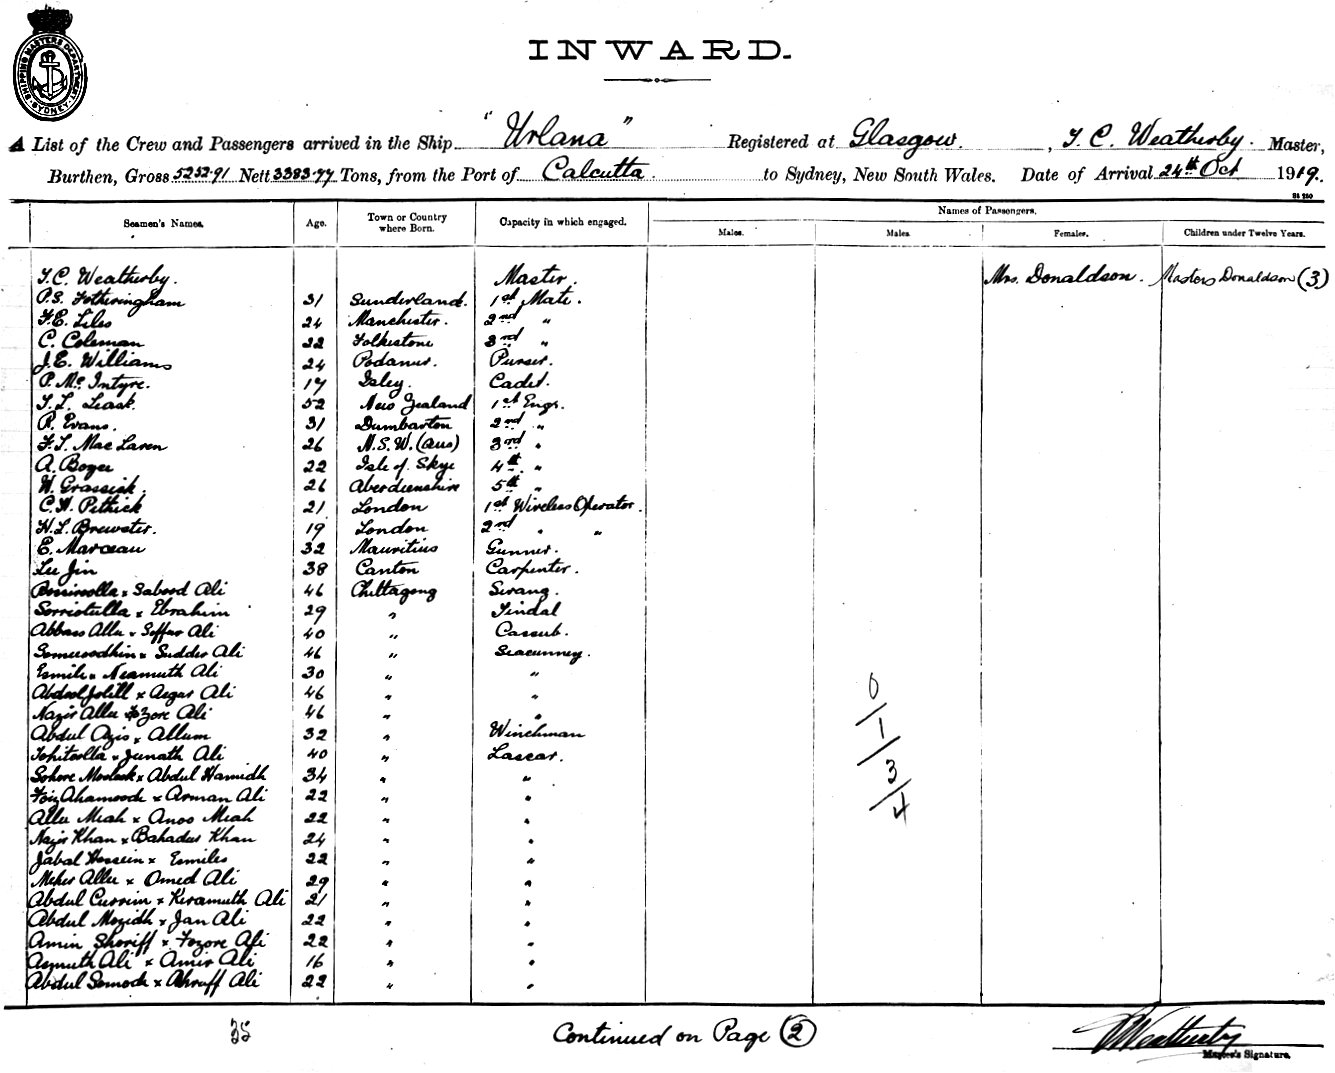 SHIPPING MASTERS DEPARTMENT SYDNEY
INWARD.
A List of the Crew and Passengers arrived in the Ship "Urlana" Registered at Glasgow, T. C. Weatherby. Master,
Burthen, Gross 5252.91 Nett 3383.77 Tons, from the Port of Calcutta to Sydney, New South Wales. Date of Arrival 24th Oct 1919.
Seamen's Names. Age. Town or Country where Born. Capacity in which engaged. Names of Passengers.
Males. Males. Females. Children under Twelve Years.
T.C. Weatherby. Master. Mrs. Donaldson. Masters Donaldson (3)
P.S. Fotheringham 31 Sunderland. 1st Mate.
F.E. Liles 24 Manchester. 2nd "
C. Coleman 22 Folkestone 3rd "
J.E. Williams 24 Purser.
P. McIntyre. 17 Cadet.
T.L. Leask. 52 New Zealand 1st Engr.
R. Evans. 31 Dumbarton 2nd "
F.T. MacLaren 26 N.S.W. (Aus) 3rd "
A. Boyer 22 Isle of Skye 4th "
W. Grassick. 26 Aberdeenshire 5th "
C.H. Pethick 21 London 1st Wireless Operator.
H.L. Brewster. 19 London 2nd " "
E. Marceau 32 Mauritius Gunner.
Lee Jin 38 Canton Carpenter.
x Sabood Ali 46 Chittagong Serang.
Sorriotulla x Ebrahim 29 " Tindal
Abbass Allee x Soffur Ali 40 " Cassub.
x Sudder Ali 46 " Seacunney.
Esmile x Neamuth Ali 30 " "
Abdool Jolill x Asgar Ali 46 " "
Nazir Allee Fozore Ali 46 " "
Abdul Azis x Allum 32 " Winchman
x Junath Ali 40 " Lascar.
x Abdul Hamidh 34 " "
x Arman Ali 22 " "
Allee Meah x Anoo Meah 22 " "
Nazir Khan x Bahadur Khan 24 " "
Jabal Hossein x Esmiles 22 " "
Meher Allee x Omed Ali 29 " "
Abdul Currim x Keramuth Ali 21 " "
Abdul Mozidh x Jan Ali 22 " "
Amin Shoriff x Fozore Ali 22 " "
Asmuth Ali x Amir Ali 16 " "
Abdul Somode x Ahruff Ali 22 " "
0
1
3
4
35 Continued on Page (2) Weatherby
Master's Signature.